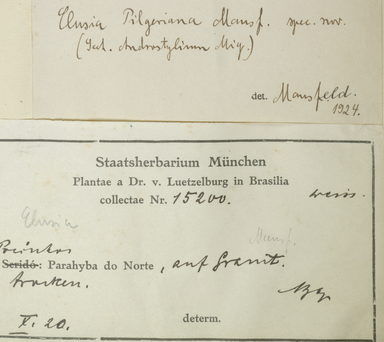 Clusia Pilgeriana Mansf. spec. nov.
(Sect. Androstylium Miq.)
det. Mansfeld.
1924.
Staatsherbarium München
Plantae a Dr. v. Luetzelburg in Brasilia
collectae Nr. 15200. weiss.
Clusia
Mansf.
Seridó: Parahyba do Norte, auf Granit.
trocken.
X. 20. determ.